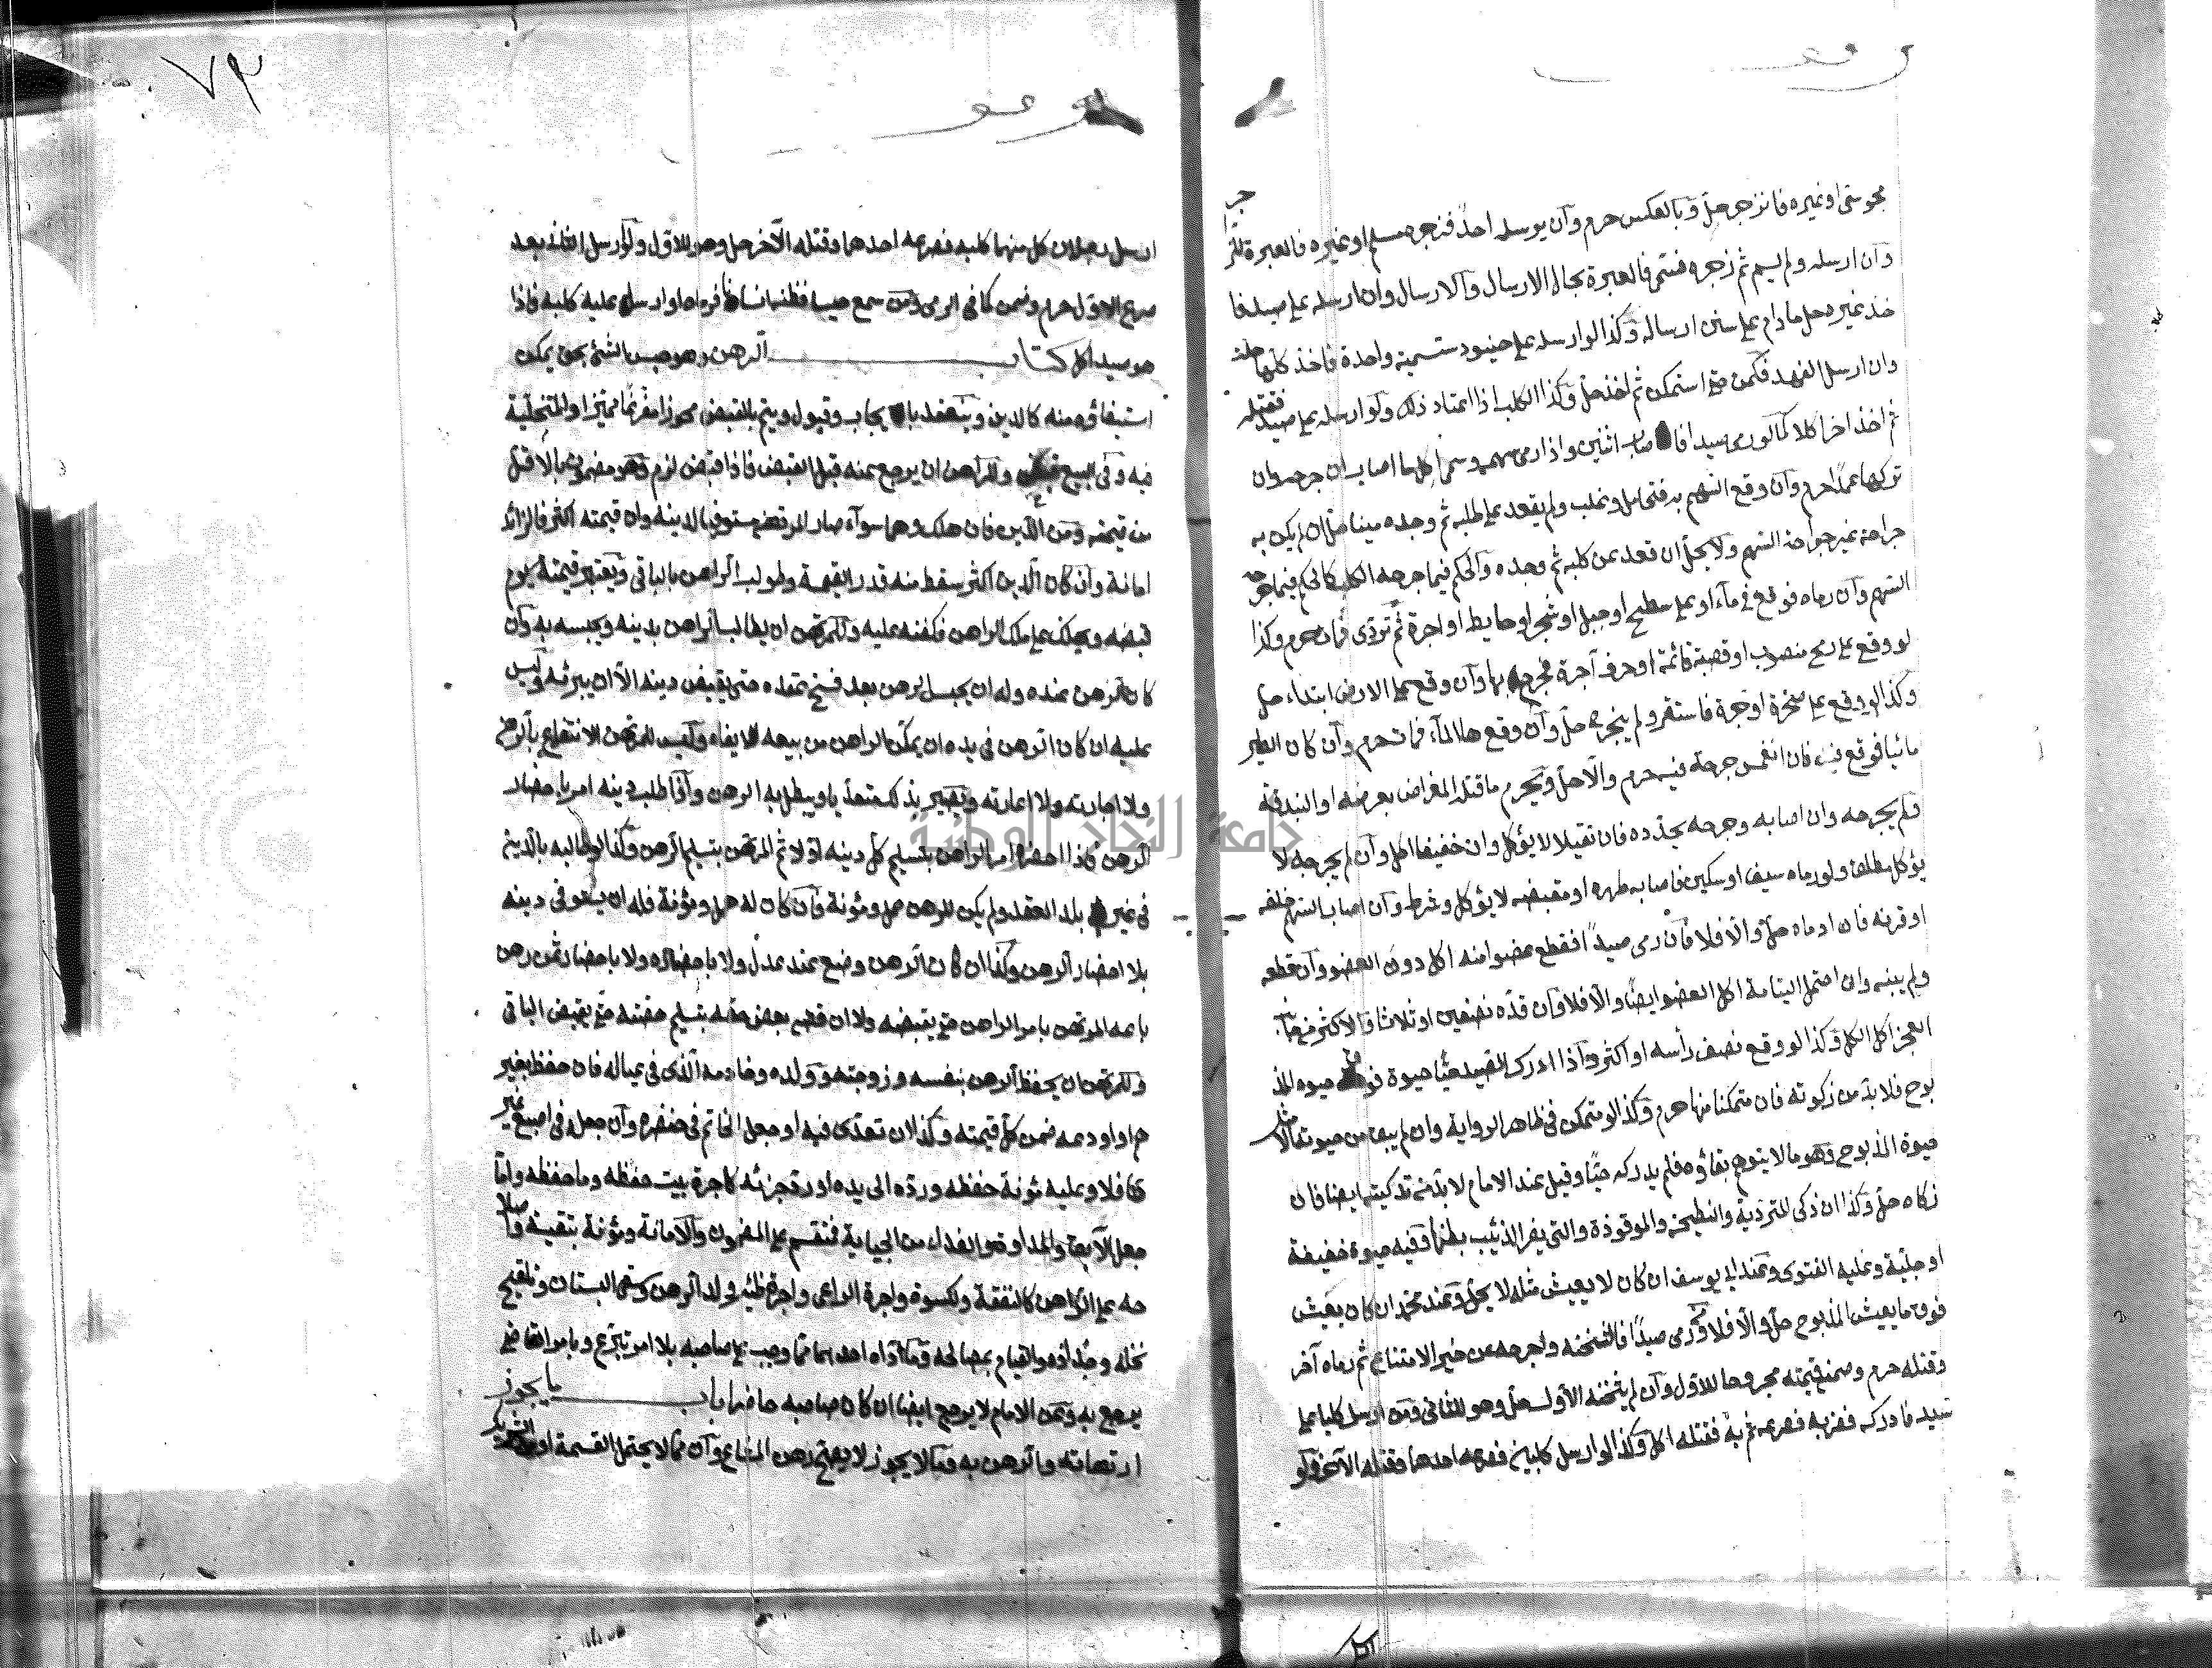 مجوسي او غيره فانزجر حل وبالعكس حرم وان يوسله احد فزجره مسلم او غيره فالعبرة للزا
جر
وان ارسله ولم يسم ثم زجره فسمى فالعبرة بحال الارسال والارسال وان ارسله على صيد فا
خذ غيره حل ما دام على سنن ارساله وكذا لو ارسله على صيود بتسمية واحدة فاخذ كلها حلت
وان ارسل الفهد فكمن حتى استمكن ثم اخذ حل وكذا الكلب اذا اعتاد ذلك ولو ارسله على صيد فقتله
ثم اخذ اخرا كلا كما لو رمى صيدا فاصاب اثنين واذا رمى سهمه وسمى اكل ما اصاب ان جرحه وان
تركها عمدا حرم وان وقع السهم به فتحامل وغاب ولم يقعد على طلبه ثم وجده ميتا حل ان لم يكن به
جراحة غير جراحة السهم ولا يحل ان قعد عن كلبه ثم وجده والحكم فيما جرحه الكلب كالحكم فيما جرحه
السهم وان رماه فوقع في ماء او على سطح او جبل او شجر او حايط او اجرة ثم تردى فمات حرم وكذا
لو وقع على رمح منصوب او قصبة قائمة او حرف آجرة فجرح بها وان وقع على الارض ابتداء حل
وكذا لو وقع على صخرة او آجرة فاستقر ولم ينجرح حل وان وقع في الماء فمات حرم وان كان الطير
مائيا فوقع فيه فان انغمس جرحه فيه حرم والا حل ويحرم ما قتله المعراض بعرضه او البندقة
ولم يجرحه وان اصابه وجرحه بحده فان ثقيلا لا يؤكل وان خفيفا اكل وان لم يجرحه لا
يؤكل مطلقا ولو رماه سيف او سكين فاصابه ظهره او مقبضه لا يؤكل وشرط وان اصاب السهم خلفه
او قرنه فان ادماه حل والا فلا فان رمى صيدا فقطع عضوا منه اكل دون العضو وان قطعه
ولم يبنه وان احتمل التيامه اكل العضو ايضا والا فلا وان قده نصفين او ثلاثا والاكثر من جانب
العجز اكل الكل وكذا لو وقع نصف رأسه او اكثر واذا ادرك الصيد حيا حيوة فوق حيوة المذ
بوح فلا بد من زكوته فان متمكنا منها حرم وكذا لو متمكن في ظاهر الرواية وان لم يبق من حيوته الا مثل
حيوة المذبوح وهو ما لا يتوهم بقاؤه فلم يدركه حيا وقيل عند الامام لا بد من تذكيته ايضا فان
زكاه حل وكذا ان ذكى المتردية والنطيحة والموقوذة والتي بقر الذئيب بطنها وفيه حيوة خفيفة
او جلية وعليه الفتوى وعند ابي يوسف ان كان لا يعيش مثله لا يحل وعند محمد ان كان يعيش
فوق ما يعيش المذبوح حل والا فلا ومن رمى صيدا فاثخنه واخرجه عن حيز الامتناع ثم رماه آخر
وقتله حرم وضمن قيمته مجروحا للاول وان لم يثخنه الاول حل وهو للثاني ومن ارسل كلبا على
صيد فادركه فضربه فصرعه ثم به فقتله اكل وكذا لو ارسل كلبين فصرعه احدهما وقتله الآخر ولو
٧٣
ارسل رجلان كل منهما كلبه فصرعه احدهما وقتله الآخر حل وهو للاول ولو ارسل الثاني بعد
صرع الاول حرم وضمن كما في الرمي ومن سمع حسا فظنه انسانا فرماه او ارسل عليه كلبه فاذا
هو صيد اكل كتاب الرهن وهو حبس الشئ بحق يمكن
استيفاؤه منه كالدين وينعقد بايجاب وقبول ويتم بالقبض محوزا مفرغا مميزا والتخلية
فيه وفي البيع قبض وللراهن ان يرجع عنه قبل القبض فاذا قبض لزم وهو مضمون بالاقل
من قيمته ومن الدين فان هلك وهما سوآء صار المرتهن مستوفيا لدينه وان قيمته اكثر فالزائد
امانة وان كان الدين اكثر سقط منه قدر القيمة وطولب الراهن بالباقي ويعتبر قيمته يوم
قبضه ويهلك على ملك الراهن فكفنه عليه وللمرتهن ان يطالب الراهن بدينه ويحبسه به وان
كان الرهن عنده وله ان يحبس الرهن بعد فسخ عقده حتى يقبض دينه الا ان يبرئه وليس
عليه ان كان الرهن في يده ان يمكن الراهن من بيعه للايفاء وليس للمرتهن الانتفاع بالرهن
ولا اجارته ولا اعارته ويصير بذلك متعديا ولا يبطل به الرهن واذا طلب دينه امر باحضار
الرهن فاذا احضره امر الراهن بتسليم كل دينه اولا ثم المرتهن بتسليم الرهن وكذا لو طالبه بالدين
في غير بلد العقد ولم يكن للرهن حمل ومئونة فان كان له حمل ومؤنة فله ان يستوفي دينه
بلا احضار الرهن وكذا ان كان الرهن وضع عند عدل ولا باحضاره ولا باحضار ثمن رهن
باعه المرتهن بامر الراهن حتى يقبضه ولا ان قضى بعض حقه بتسليم حصته حتى يقبض الباقي
وللمرتهن ان يحفظ الرهن بنفسه وزوجته وولده وخادمه الذي في عياله فان حفظ بغير
هم او اودعه ضمن كل قيمته وكذا لان تعدى فيه او جعل الخاتم في خنصره وان جعله في اصبع غير
ها فلا وعليه مئونة حفظه ورده الى يده او رد جزئه كاجرة بيت حفظه وحافظه واما
جعل الآبق والمداواة والفداء من الجناية فتقسم على المضمون والامانة ومؤنة تبقيته واصلا
حه على الراهن كالنفقة والكسوة واجرة الراعي واجرة ظئر ولد الرهن وسقي البستان وتلقيح
نخله وجذاذه والقيام بمصالحه وما اداه احدهما مما وجب على صاحبه بلا امر تبرع وبامر القاضي
يرجع به وعن الامام لا يرجع ايضا ان كان صاحبه حاضرا باب ما يجوز
ارتهانه والرهن به وما لا يجوز لا يصح رهن المشاع وان مما لا يحتمل القسمة او من الشريك
جامعة النجاح الوطنية